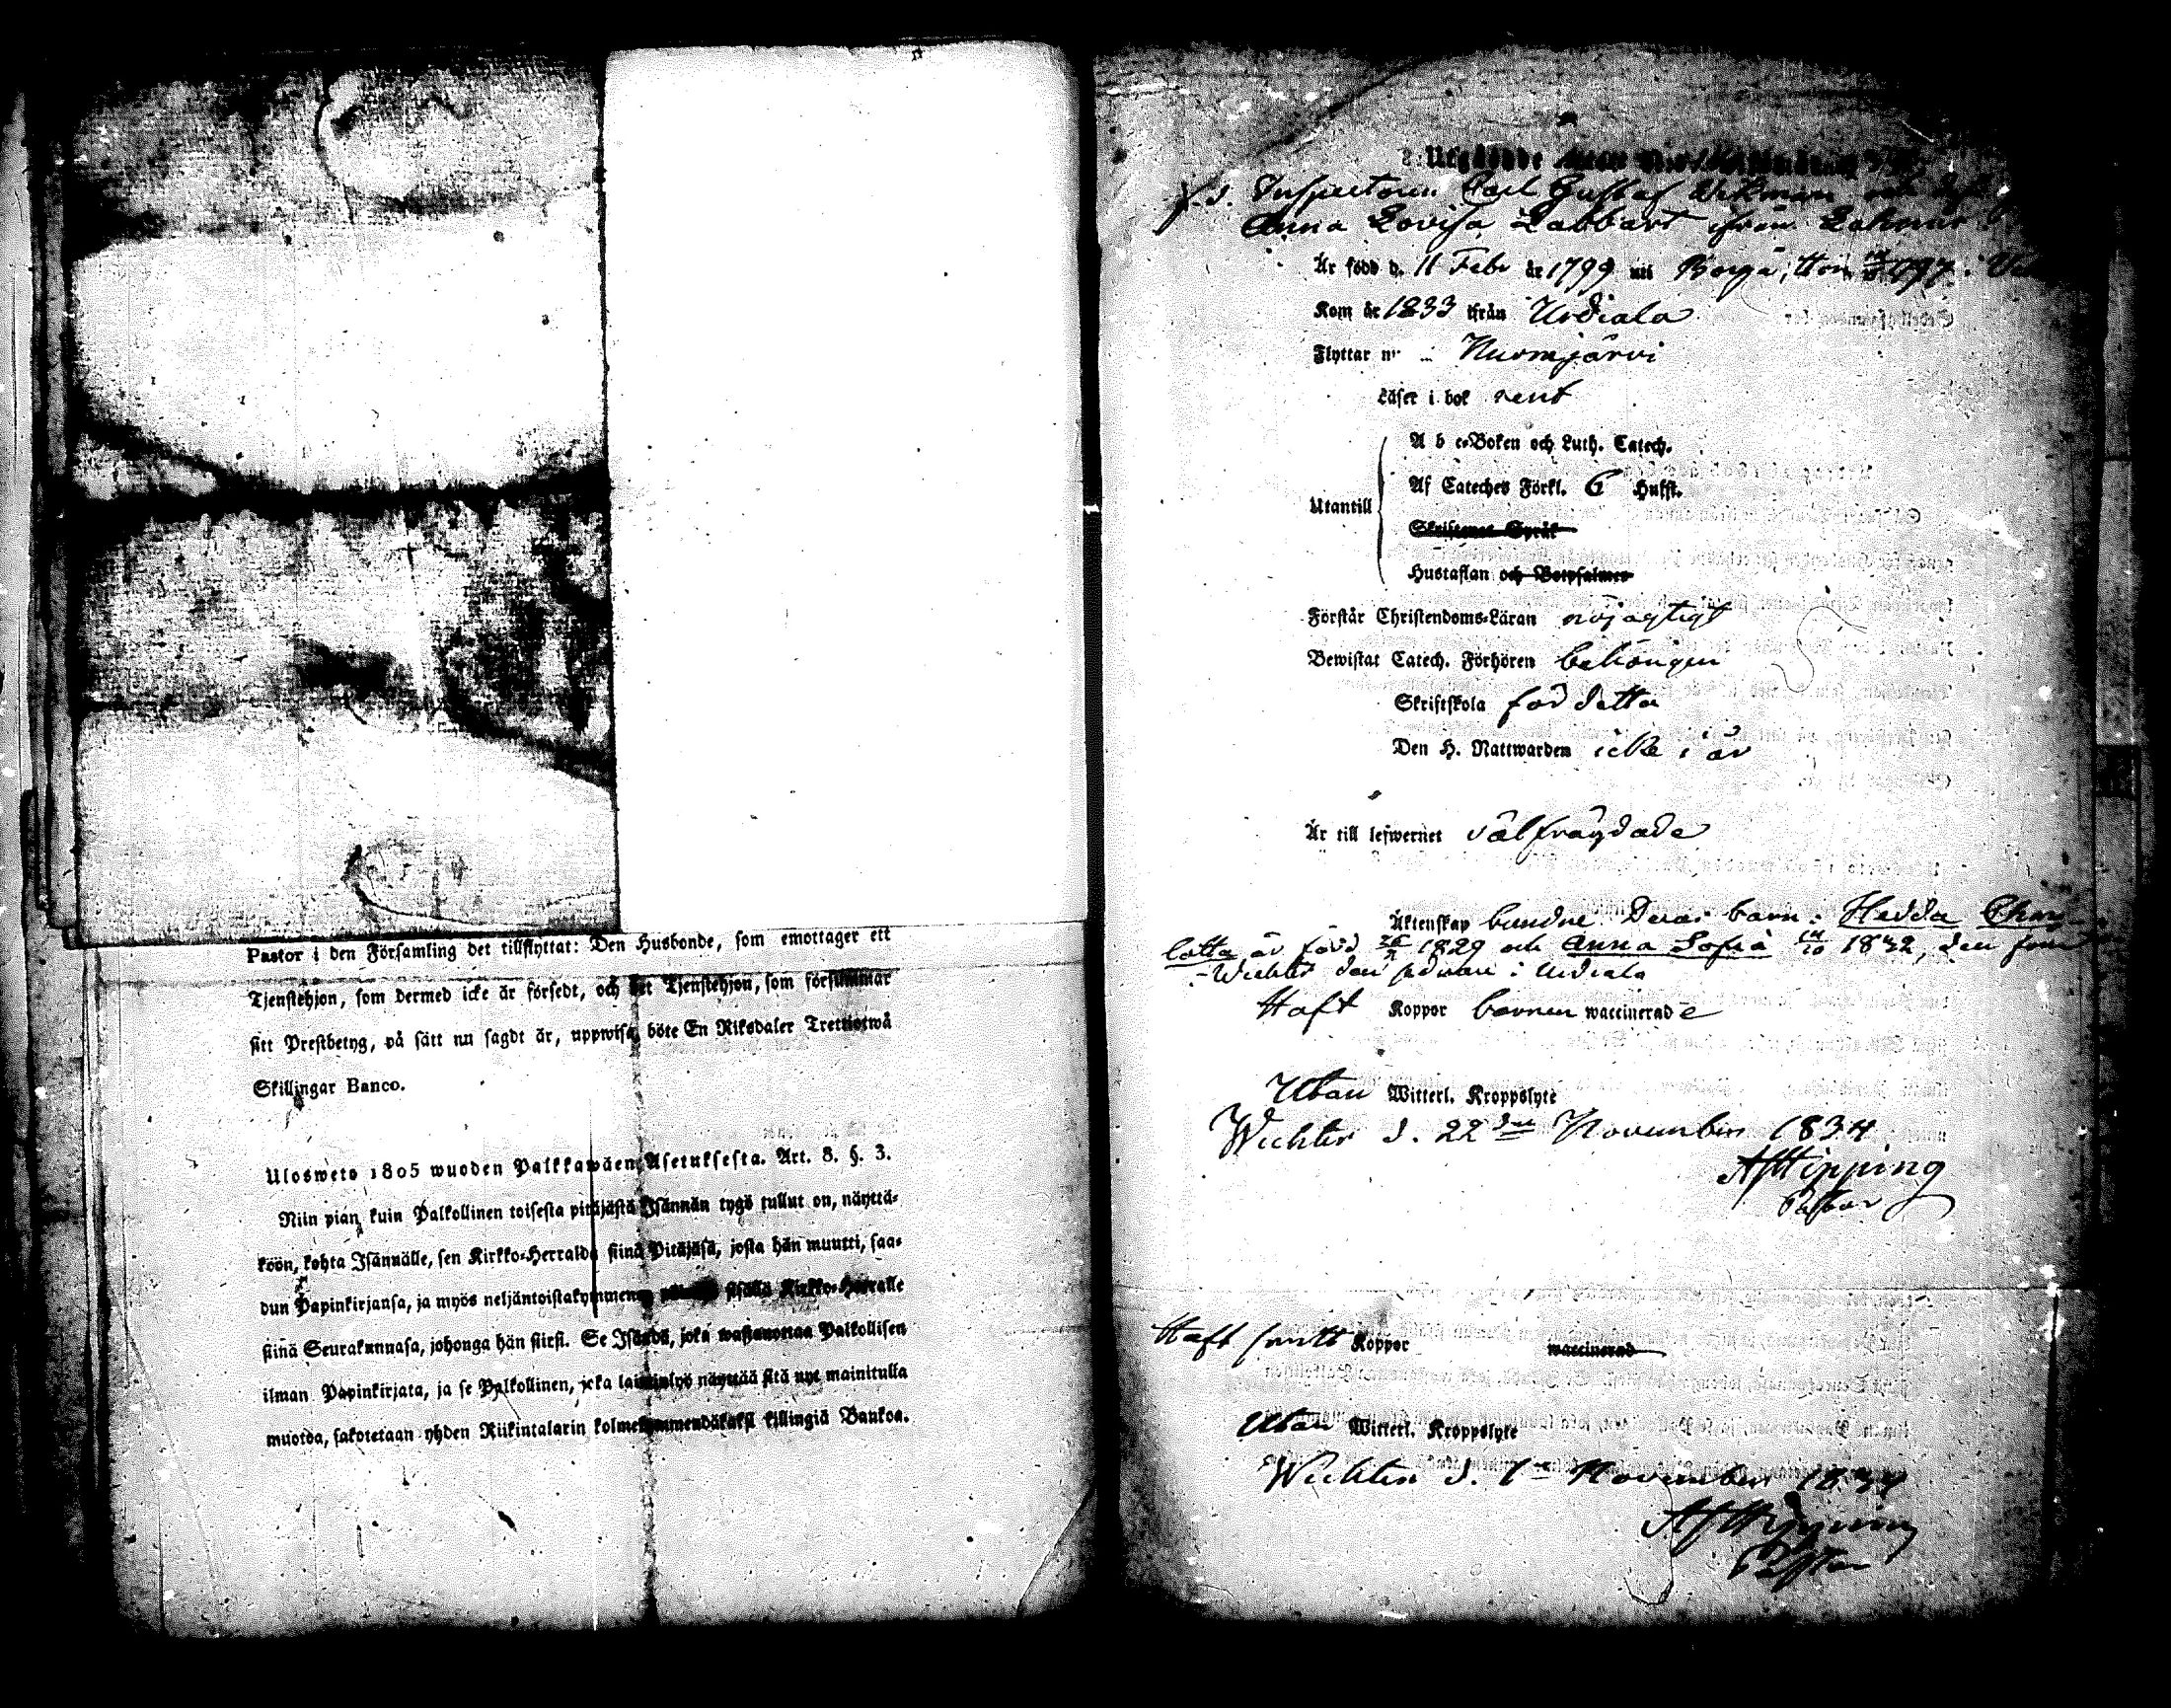 Pastor i den Församling det tillflyttat: Den Husbonde, som emottager ett
Tjenstehjon, som dermed icke är försedt, och det Tjenstehjon, som försummar
sitt Prestbetyg, på sätt nu sagdt är, uppwisa, böte En Riksdaler Trettiotwå
Skillingar Banco.
Uloswets 1805 wuoden Palkkawäen Asetuksesta. Art. 8. §. 3.
Niin pian kuin Palkollinen toisesta pitäjästä Isännän tygö tullut on, näyttä-
köön, kohta Isännälle, sen Kirkko-Herralda siinä Pitäjäsä, josta hän muutti, saa-
dun Papinkirjansa, ja myös neljäntoistakymmenen sisällä Kirkko-Herralle
siinä Seurakunnasa, johonga hän siirsi. Se Isändä, joka wastanottaa Palkollisen
ilman Papinkirjata, ja se Palkollinen, joka laiminlyö näyttää sitä nyt mainitulla
muotda, sakotetaan yhden Riikintalarin kolmekymmendäkaksi killingiä Bankoa.
Utgående
f.d. Inspectoren Carl Gustaf Wikman och
Anna Lovisa Labbart ifrån
Är född d. 11 Febr år 1799 uti Borgå, Hon 1797 i
Kom år 1833 ifrån Urdiala
Flyttar Nurmijärvi
Läser i bok rent
A b c-Boken och Luth. Catech.
Utantill Af Cateches Förkl. 6 Hufst.
Skriftenes Språk
Hustaflan och Botpsalmer
Förstår Christendoms-Läran nöjagtigt
Bewistat Catech. Förhören behörigen
Skriftskola för detta
Den H. Nattwarden icke i år
Är till lefwernet välfrägdade
Äktenskap bundne. Deras barn: Hedda Char-
lotta är född 1829 och Anna Sofia 1832, den förra
i Wichtis den sednare i Urdiala
Haft Koppor barnen waccinerade
Utan Witterl. Kroppslyte
Wichtis d. 22dre November 1834
AJHipping
Pastor
Haft Koppor waccinerad
Utan Witterl. Kroppslyte
Wichtis d. November 1834
AJHipping
Pastor